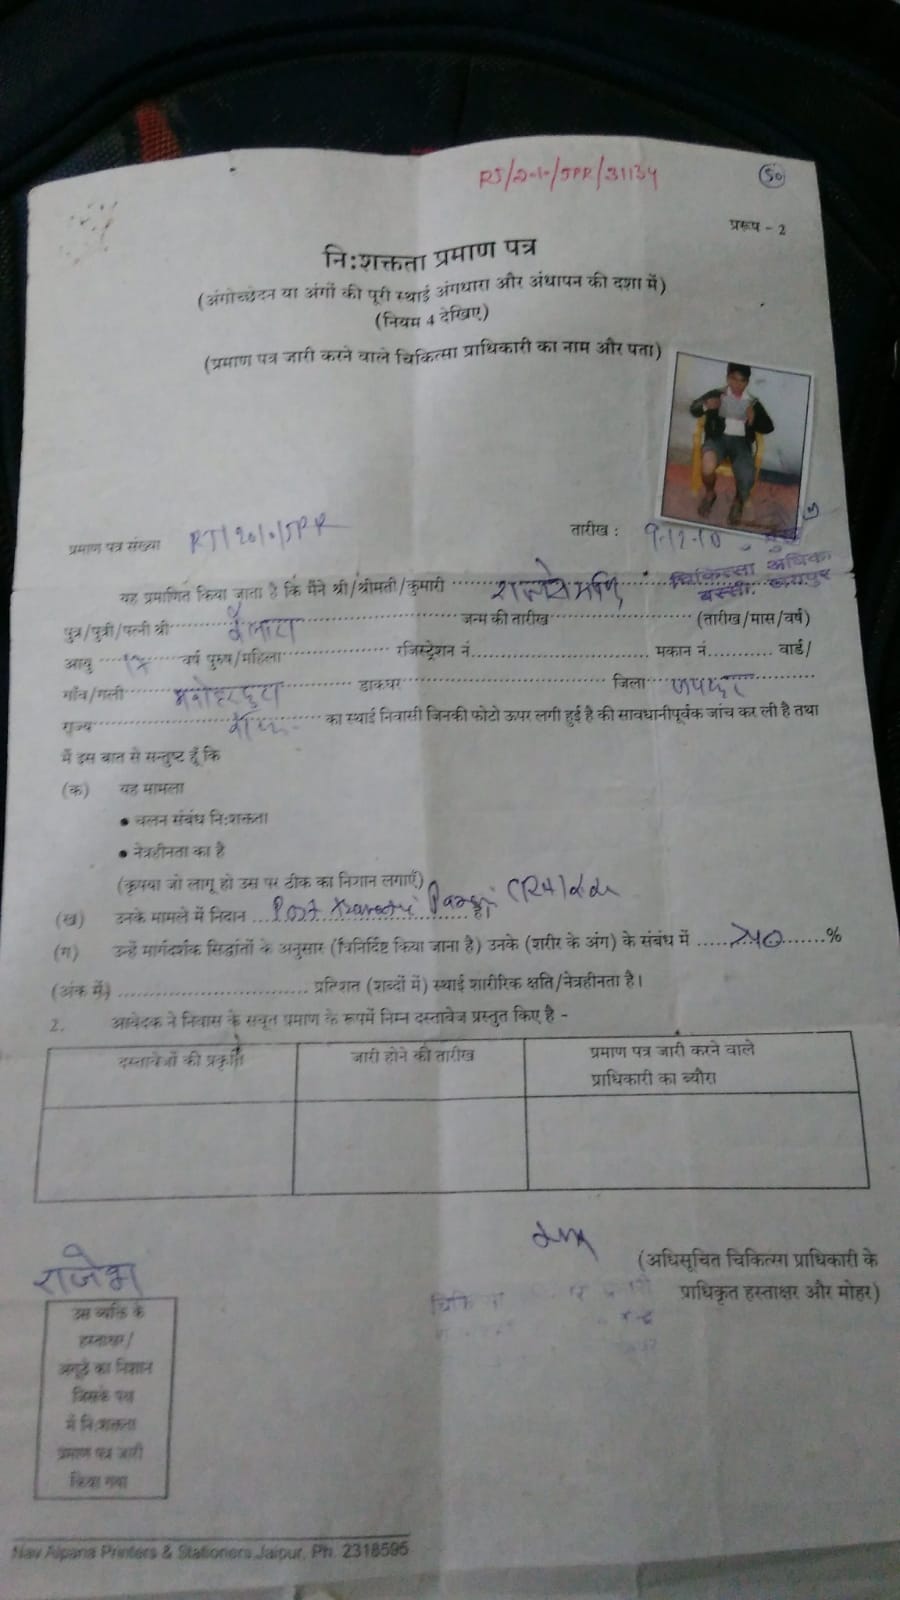 RJ/2010/JPR/31134
50
प्ररूप - 2
निःशक्तता प्रमाण पत्र
(अंगोच्छेदन या अंगों की पूरी स्थाई अंगधारा और अंधापन की दशा में)
(नियम 4 देखिए)
(प्रमाण पत्र जारी करने वाले चिकित्सा प्राधिकारी का नाम और पता)
प्रमाण पत्र संख्या RJ/2010/JPR तारीख : 9-12-10
चिकित्सा अधिका
बस्सी, जयपुर
यह प्रमाणित किया जाता है कि मैंने श्री/श्रीमती/कुमारी
पुत्र/पुत्री/पत्नी श्री जन्म की तारीख (तारीख/मास/वर्ष)
आयु वर्ष पुरुष/महिला रजिस्ट्रेशन नं. मकान नं. वार्ड/
गाँव/गली डाकघर जिला जयपुर
राज्य का स्थाई निवासी जिनकी फोटो ऊपर लगी हुई है की सावधानीपूर्वक जांच कर ली है तथा
मैं इस बात से सन्तुष्ट हूँ कि
(क) यह मामला
• चलन संबंध निःशक्तता
• नेत्रहीनता का है
(कृपया जो लागू हो उस पर टीक का निशान लगाएँ)
(ख) उनके मामले में निदान Post है।
(ग) उन्हें मार्गदर्शक सिद्धांतों के अनुसार (विनिर्दिष्ट किया जाना है) उनके (शरीर के अंग) के संबंध में %
(अंक में) प्रतिशत (शब्दों में) स्थाई शारीरिक क्षति/नेत्रहीनता है।
2. आवेदक ने निवास के सबूत प्रमाण के रूपमें निम्न दस्तावेज प्रस्तुत किए है -
दस्तावेजों की प्रकृति जारी होने की तारीख प्रमाण पत्र जारी करने वाले
प्राधिकारी का ब्यौरा
(अधिसूचित चिकित्सा प्राधिकारी के
प्राधिकृत हस्ताक्षर और मोहर)
राजेश
उस व्यक्ति के
हस्ताक्षर/
अंगूठे का निशान
जिसके पक्ष
में निःशक्तता
प्रमाण पत्र जारी
किया गया
Nav Alpana Printers & Stationers Jaipur, Ph. 2318595